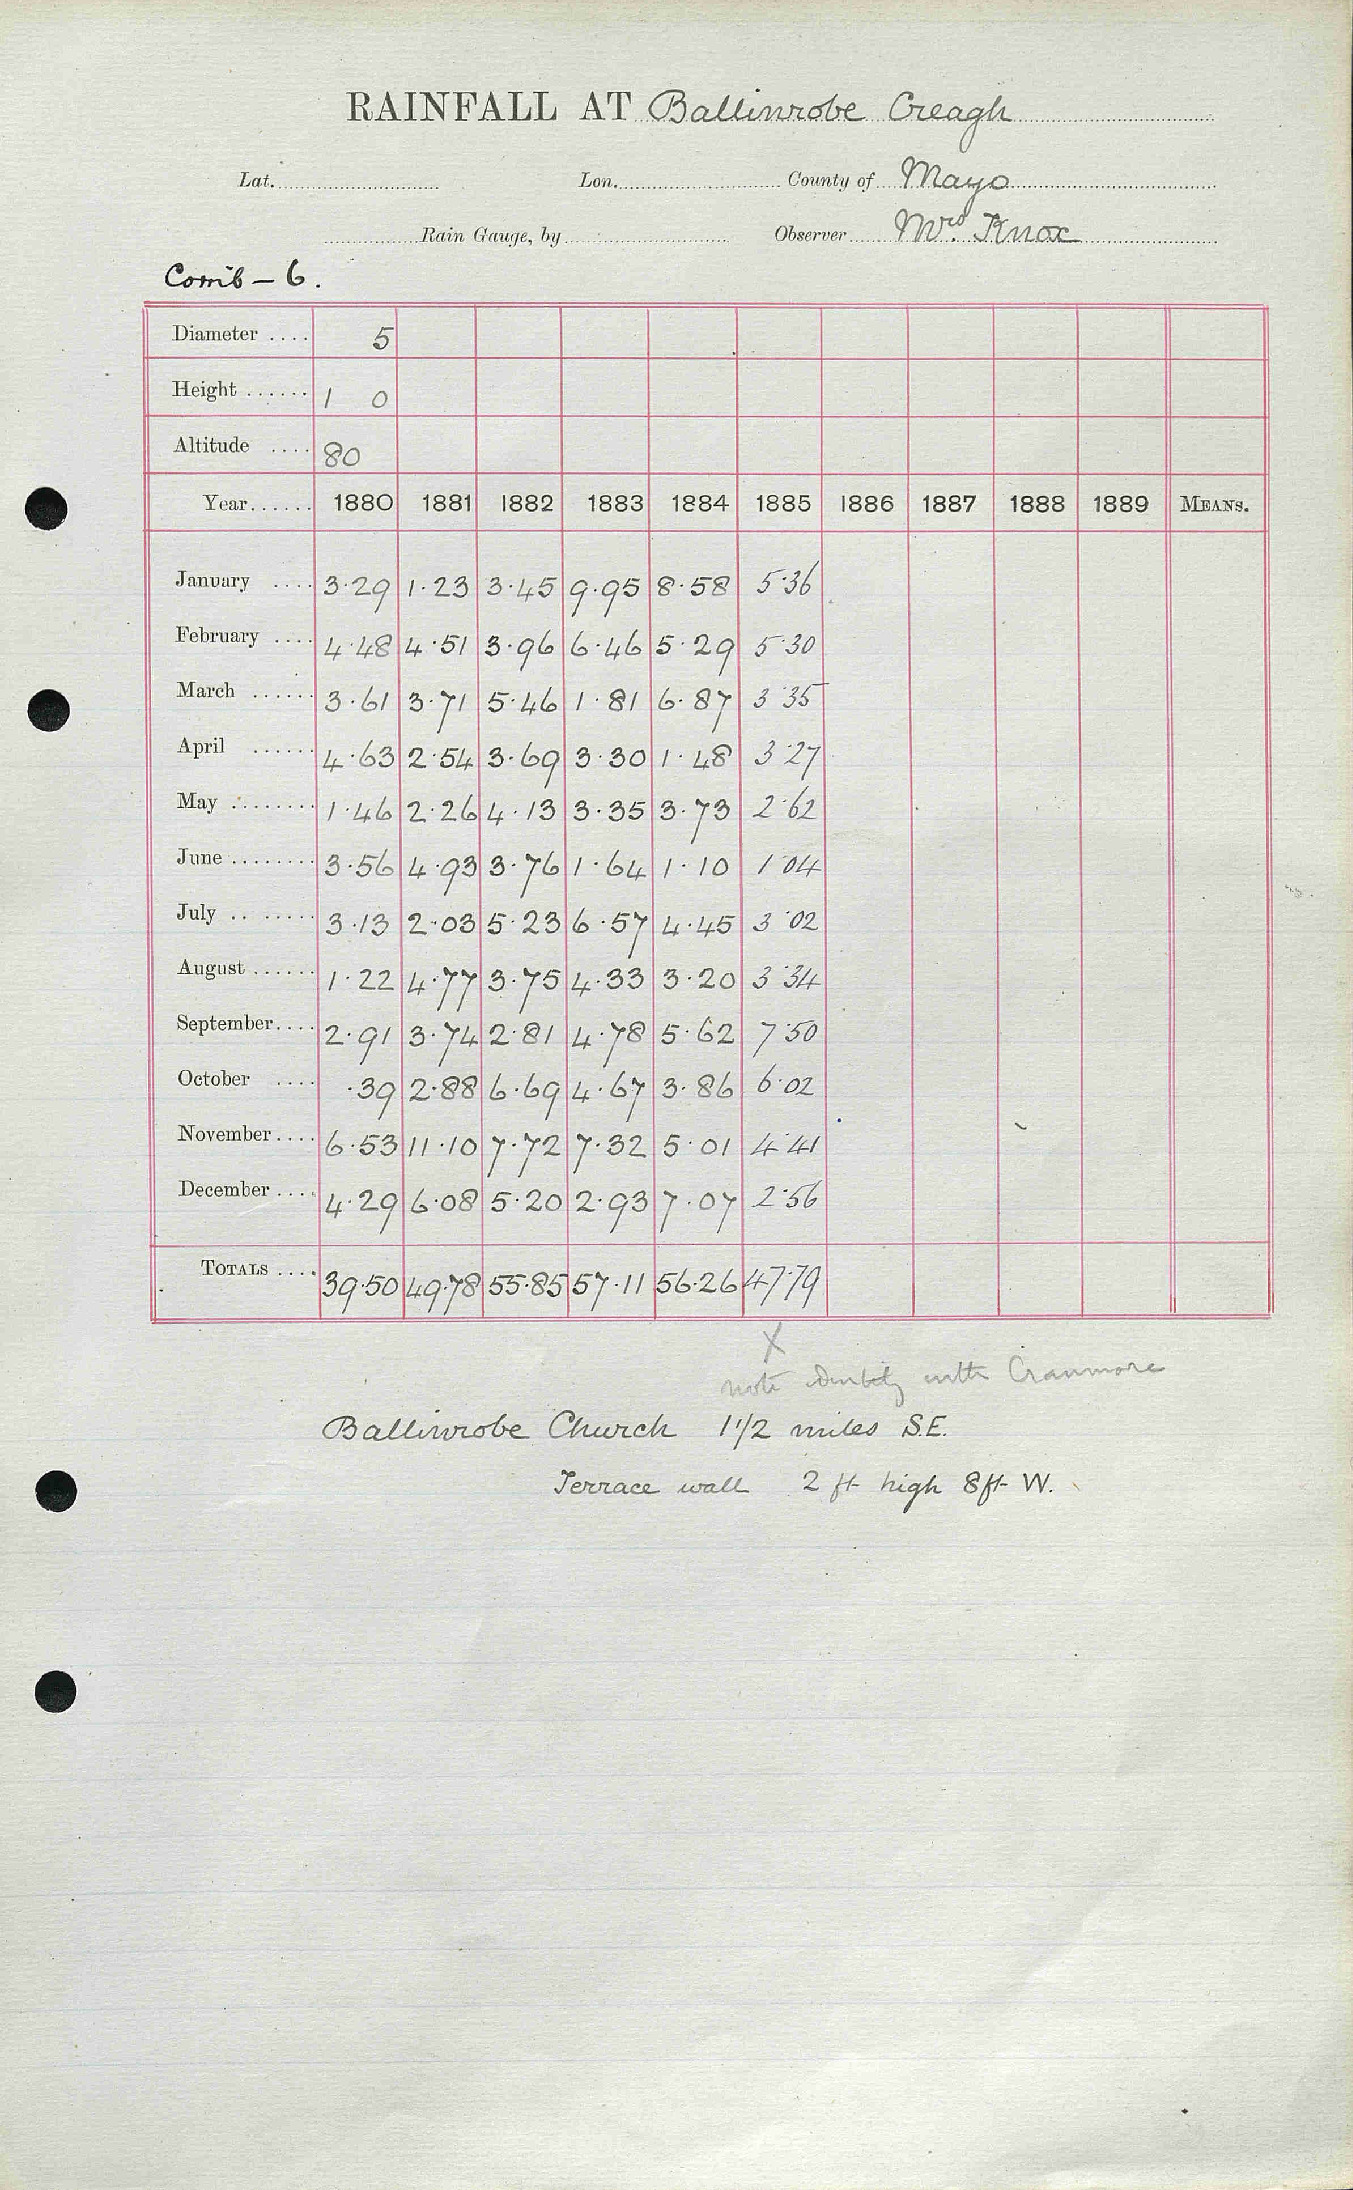 RAINFALL AT Ballinrobe Creagh
Lat. Lon. County of Mayo
Rain Gauge, by Observer Mrs. Knox
Corrib - 6.
Diameter .... 5
Height ...... 1 0
Altitude .... 80
Year...... 1880 1881 1882 1883 1884 1885 1886 1887 1888 1889 MEANS.
January .... 3.29 1.23 3.45 9.95 8.58 5.36
February .... 4.48 4.51 3.96 6.46 5.29 5.30
March ...... 3.61 3.71 5.46 1.81 6.87 3.35
April ...... 4.63 2.54 3.69 3.30 1.48 3.27
May ........ 1.46 2.26 4.13 3.35 3.73 2.62
June ........ 3.56 4.93 3.76 1.64 1.10 1.04
July .. ..... 3.13 2.03 5.23 6.57 4.45 3.02
August ...... 1.22 4.77 3.75 4.33 3.20 3.34
September.... 2.91 3.74 2.81 4.78 5.62 7.50
October .... .39 2.88 6.69 4.67 3.86 6.02
November.... 6.53 11.10 7.72 7.32 5.01 4.41
December .... 4.29 6.08 5.20 2.93 7.07 2.56
TOTALS .... 39.50 49.78 55.85 57.11 56.26 47.79
X
note identity with Cranmore
Ballinrobe Church 1 1/2 miles S.E.
Terrace wall 2 ft high 8ft W.